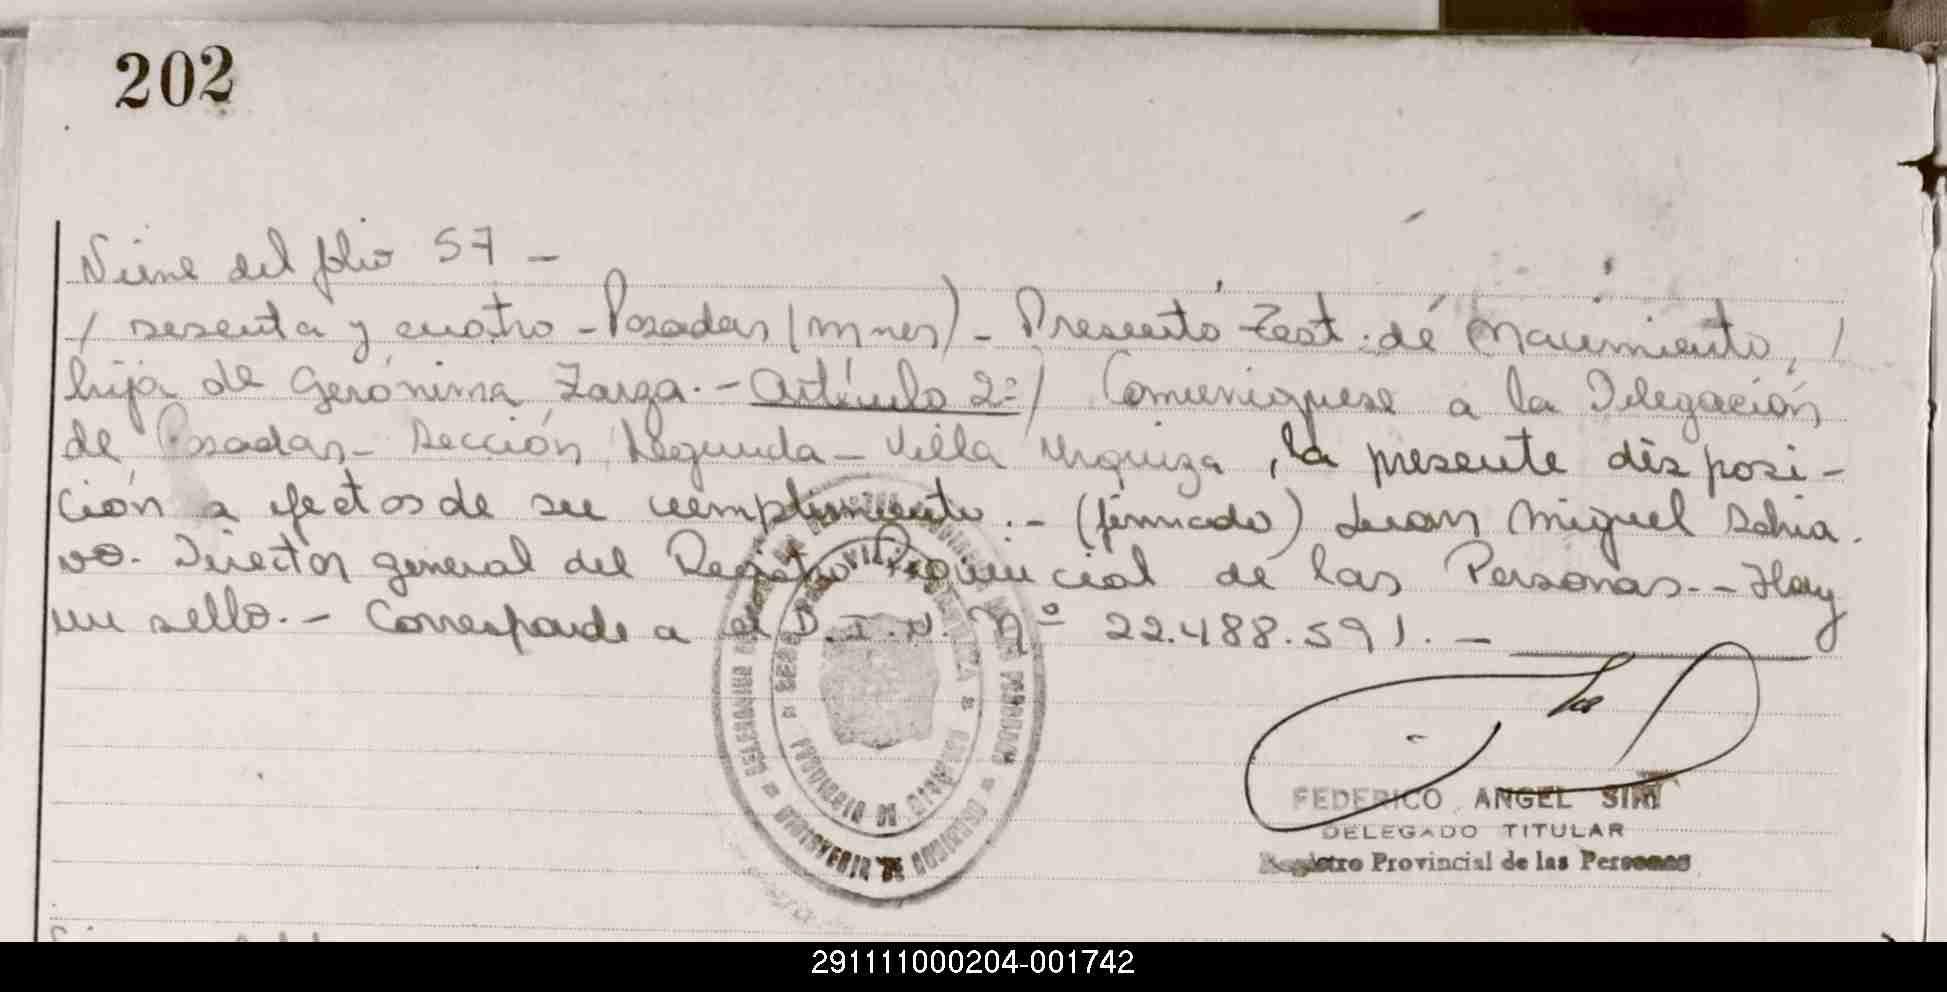 202
Viene del folio 57 -
/ sesenta y cuatro - Posadas (Mnes) - Presentó Test. de Nacimiento, /
hija de Gerónima Zarza. - Artículo 2º/ Comuníquese a la Delegación
de Posadas - Sección Segunda - Villa Urquiza, la presente disposi-
ción a efectos de su cumplimiento. - (firmado) Juan Miguel Schia.
vo. Director general del Registro Provincial de las Personas. - Hay
un sello. - Corresponde a el D.I.N. Nº 22.488.591. -
FEDERICO ANGEL
DELEGADO TITULAR
Registro Provincial de las Personas
MINISTERIO DE
PROVINCIA DE
291111000204-001742